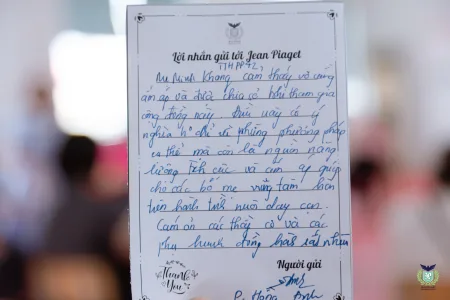 Lời nhắn gửi tới Jean Piaget
THPP42,
Mẹ Minh Khang cảm thấy vô cùng
ấm áp và được chia sẻ khi tham gia
cộng đồng này. Điều này có ý
nghĩa k chỉ về những phương pháp
cụ thể mà còn là nguồn năng
lượng tích cực và ấm áp giúp
cho các bố mẹ vững tâm hơn
trên hành trình nuôi dạy con.
Cảm ơn các thầy cô và các
phụ huynh đồng hành rất nhiều
Thank
You
Người gửi
P. Hồng Anh